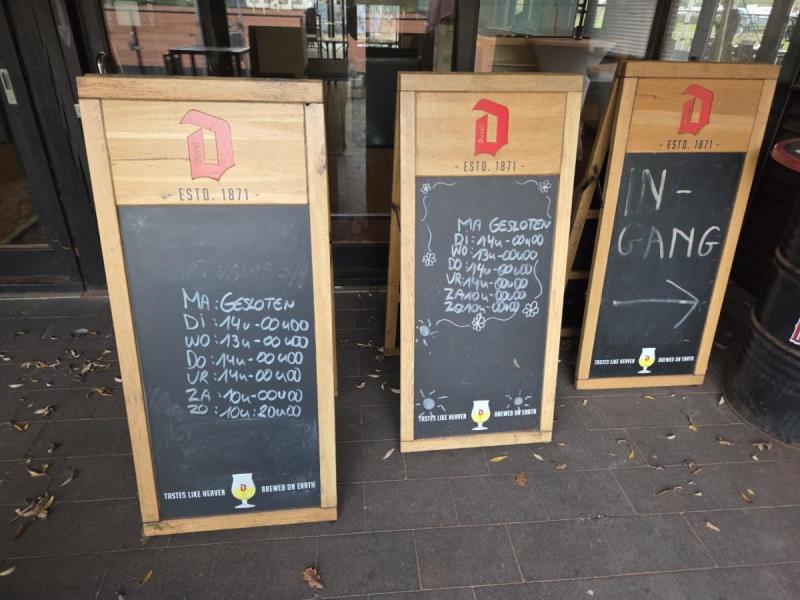 Duvel
- ESTD. 1871 -
MA: GESLOTEN
DI: 14u-00u00
WO: 13u-00u00
DO: 14u-00u00
VR: 14u-00u00
ZA: 10u-00u00
ZO: 10u:20u00
TASTES LIKE HEAVEN BREWED ON EARTH
Duvel
- ESTD. 1871 -
MA GESLOTEN
DI: 14u-00u00
WO: 13u-00u00
DO: 14u-00u00
VR: 14u-00u00
ZA: 10u-00u00
ZO: 10u-00u00
TASTES LIKE HEAVEN BREWED ON EARTH
Duvel
- ESTD. 1871 -
IN-
GANG
TASTES LIKE HEAVEN BREWED ON EARTH